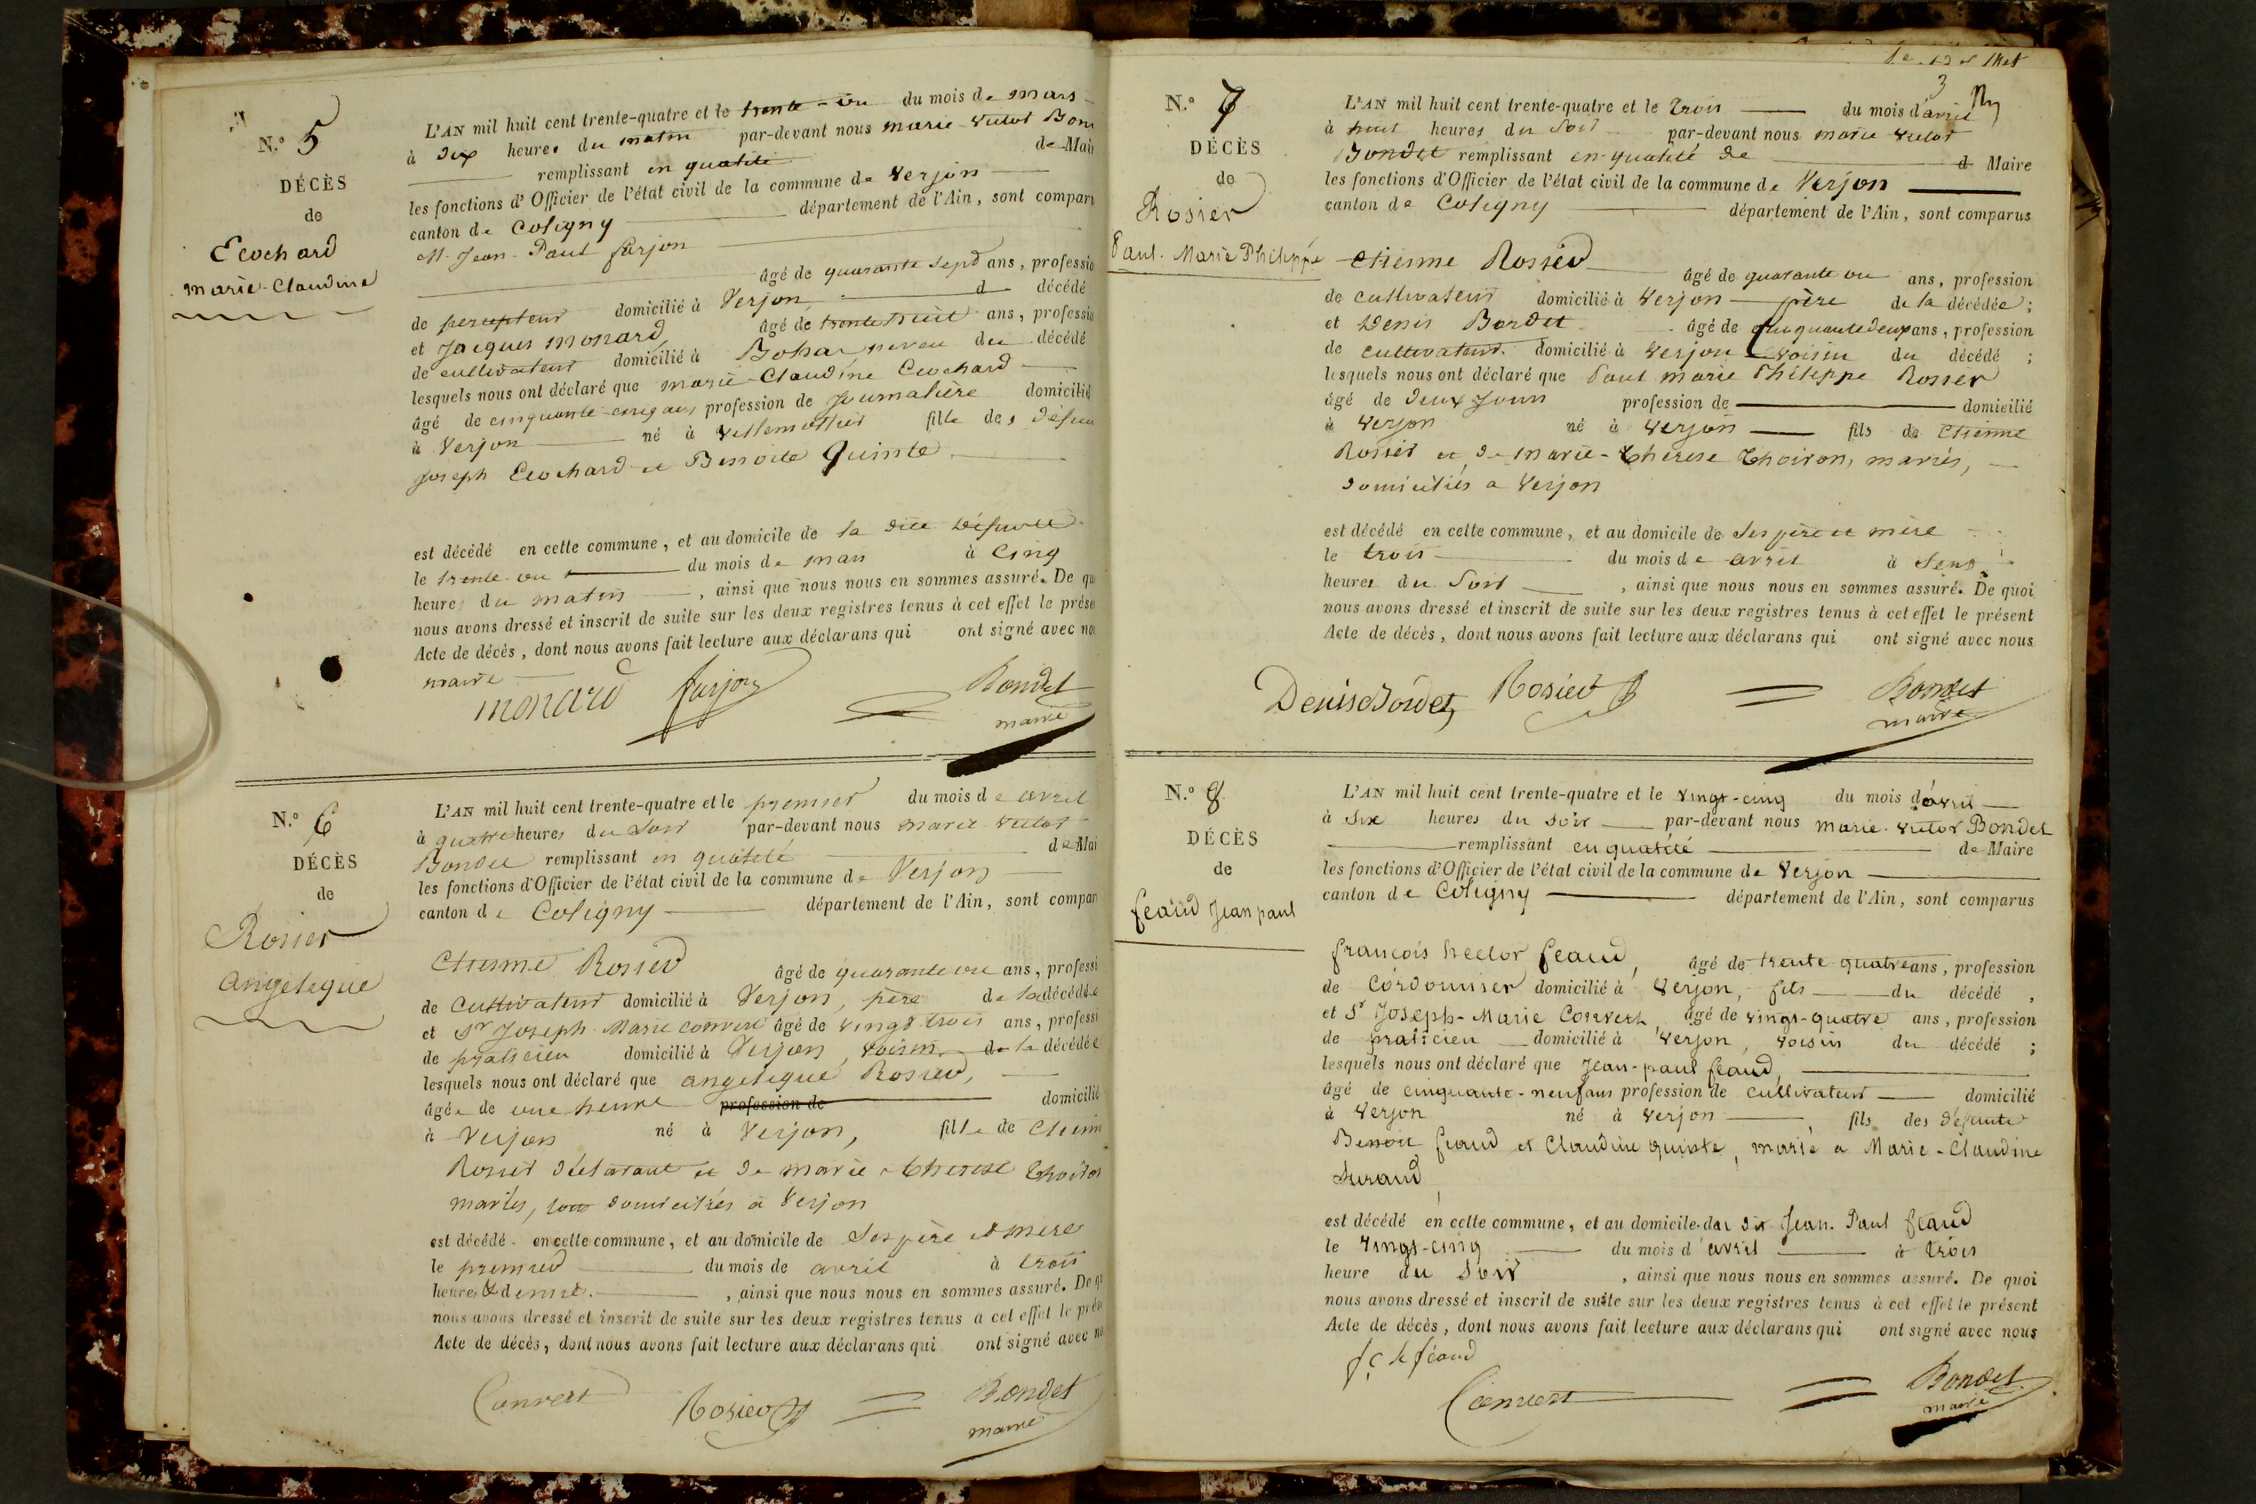 N.o 5
DÉCÈS
de
Ecochard
marie-Claudine
L'AN mil huit cent trente-quatre et le trente-un du mois de mars
à dix heures du matin par-devant nous marie-victor Bon
remplissant en qualité de Mair
les fonctions d'Officier de l'état civil de la commune de Verjon
canton de Coligny département de l'Ain, sont compar
M. Jean-Paul farjon
âgé de quarante sept ans, professio
de percepteur domicilié à Verjon d décédé
et Jacques monard, âgé de trente huit ans, professio
de cultivateur domicilié à Bohas, neveu du décédé
lesquels nous ont déclaré que marie-Claudine Ecochard
âgé de cinquante-cinq ans profession de Journalière domicilié
à Verjon né à Villemottier fille des défun
joseph Ecochard et Benoite Quinte,
est décédé en cette commune, et au domicile de la dite défunte
le trente-un du mois de mars à Cinq
heures du matin, ainsi que nous nous en sommes assuré. De qu
nous avons dressé et inscrit de suite sur les deux registres tenus à cet effet le prése
Acte de décès, dont nous avons fait lecture aux déclarans qui ont signé avec no
maire
monard farjon Bondet
maire
N.o 6
DÉCÈS
de
Rosier
angelique
L'AN mil huit cent trente-quatre et le premier du mois de avril
à quatre heures du soir par-devant nous marie victor
Bondet remplissant en qualité de Mai
les fonctions d'Officier de l'état civil de la commune de Verjon
canton de Coligny département de l'Ain, sont compar
Etienne Rosier âgé de quarante un ans, professi
de cultivateur domicilié à Verjon, père de la décédée
et Sr Joseph-Marie convert âgé de vingt trois ans, professi
de praticien domicilié à Verjon, voisin de la décédée
lesquels nous ont déclaré que angelique Rosier,
âgée de une heure profession de domicilié
à Verjon né à Verjon, fille de Etienn
Rosier déclarant et de marie-therese thoiron
mariés, tous domiciliés à Verjon
est décédé en cette commune, et au domicile de Ses père et mere
le premier du mois de avril à trois
heures & demie, ainsi que nous nous en sommes assuré. De q
nous avons dressé et inscrit de suite sur les deux registres tenus à cet effet le prés
Acte de décès, dont nous avons fait lecture aux déclarans qui ont signé avec no
Convert Rosier Bondet
maire
3
N.o 7
DÉCÈS
de
Rosier
Paul-Marie Philippe
L'AN mil huit cent trente-quatre et le trois du mois d'avril
à huit heures du soir par-devant nous marie victor
Bondet remplissant en qualité de d Maire
les fonctions d'Officier de l'état civil de la commune de Verjon
canton de Coligny département de l'Ain, sont comparus
Etienne Rosier âgé de quarante un ans, profession
de cultivateur domicilié à Verjon père de la décédée;
et Denis Bordet âgé de cinquante deux ans, profession
de cultivateur domicilié à Verjon voisin du décédé;
lesquels nous ont déclaré que Paul marie Philippe Rosier
âgé de deux jours profession de domicilié
à Verjon né à Verjon fils de Etienne
Rosier et de marie-thérèse thoiron, mariés,
domiciliés a Verjon
est décédé en cette commune, et au domicile de Ses père et mère
le trois du mois de avril à Sept
heures du Soir, ainsi que nous nous en sommes assuré. De quoi
nous avons dressé et inscrit de suite sur les deux registres tenus à cet effet le présent
Acte de décès, dont nous avons fait lecture aux déclarans qui ont signé avec nous
Denis Bordet Rosier Bondet
maire
N.o 8
DÉCÈS
de
feaud Jean paul
L'AN mil huit cent trente-quatre et le vingt-cinq du mois d'avril
à Six heures du soir par-devant nous marie-victor Bondet
remplissant en qualité de Maire
les fonctions d'Officier de l'état civil de la commune de Verjon
canton de Coligny département de l'Ain, sont comparus
françois hector feaud, âgé de trente quatre ans, profession
de Cordonnier domicilié à Verjon, fils du décédé,
et Sr Joseph-Marie Convert âgé de vingt-quatre ans, profession
de praticien domicilié à Verjon, voisin du décédé;
lesquels nous ont déclaré que Jean-paul feaud,
âgé de cinquante-neuf ans profession de cultivateur domicilié
à Verjon né à Verjon fils des défunts
Benoit feaud et Claudine quinte, marié a Marie-Claudine
Durand,
est décédé en cette commune, et au domicile du dit Jean-Paul feaud
le Vingt-cinq du mois d'avril à trois
heure du Soir, ainsi que nous nous en sommes assuré. De quoi
nous avons dressé et inscrit de suite sur les deux registres tenus à cet effet le présent
Acte de décès, dont nous avons fait lecture aux déclarans qui ont signé avec nous
fç h féaud
Convert Bondet
maire